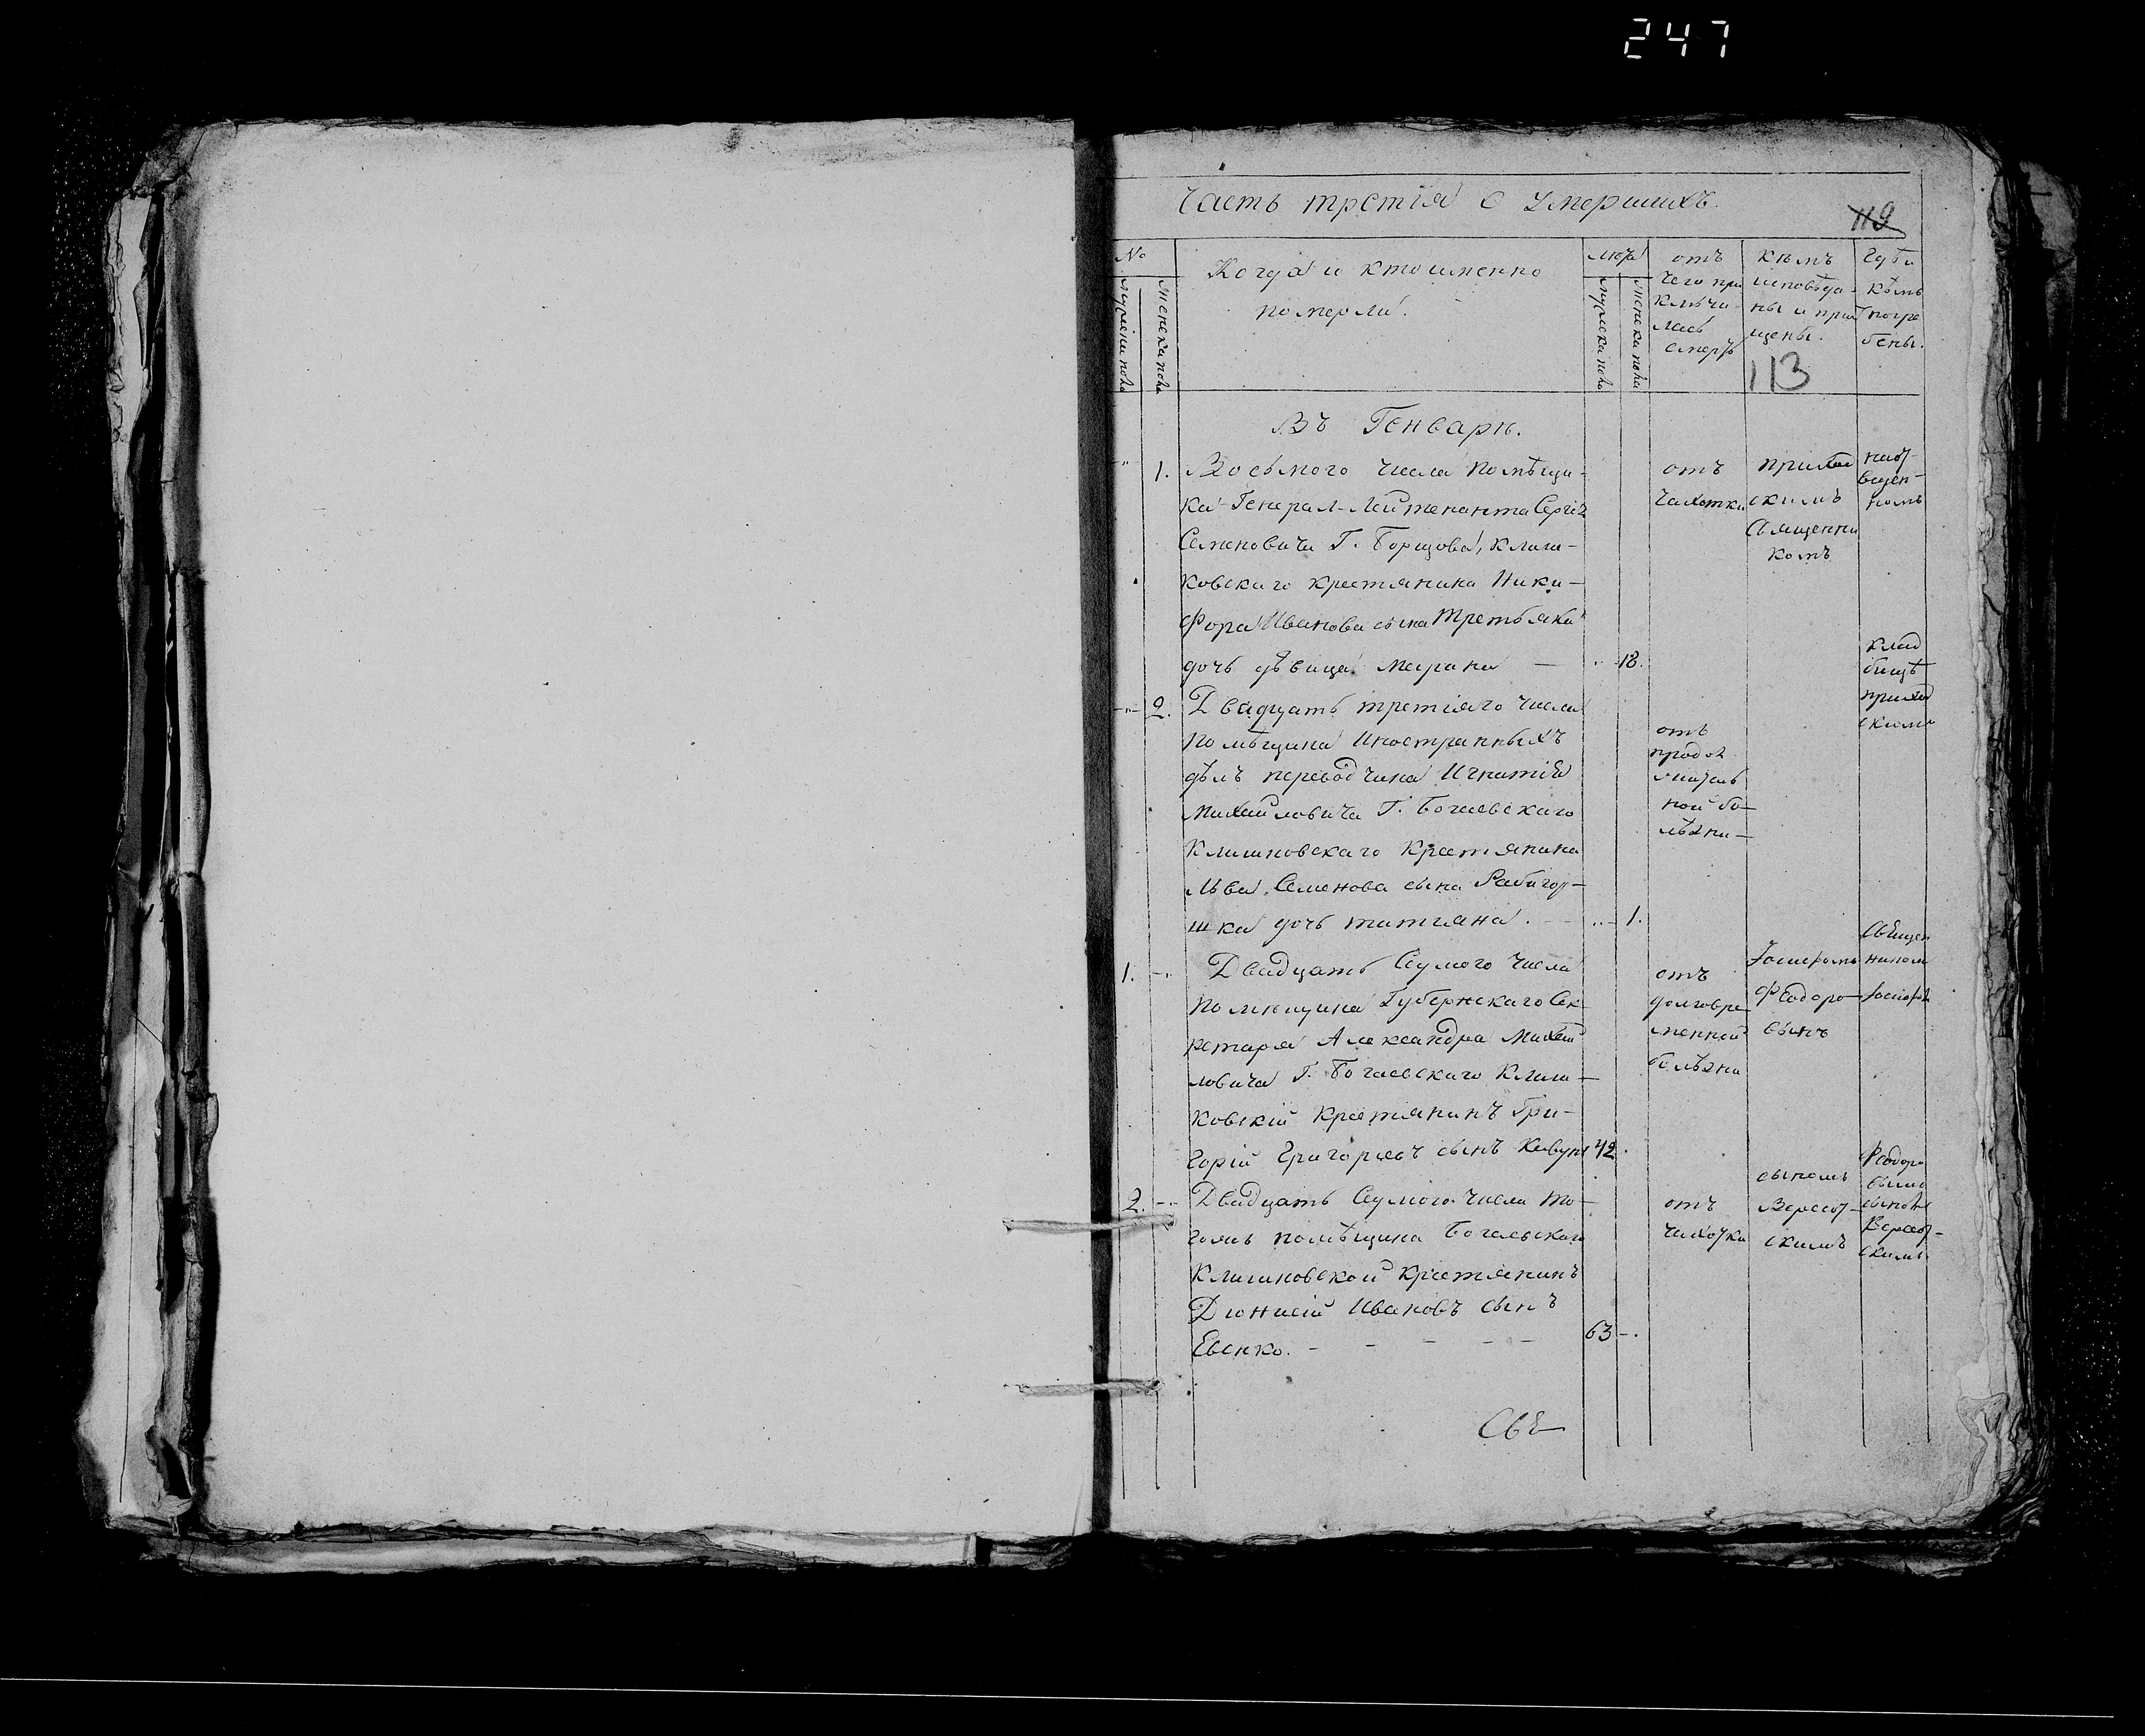 247
Часть третія о умершихъ.
119
№
мужеска пола
женска пола
Когда и кто именно
померли.
лѣта
мужеска пола
женска пола
отъ
чего при
клюѣи-
лась
смерть
Кѣмъ
исповѣда-
ны и прио
щены.
Гдѣ и
кѣмъ
погре
бены.
113
Въ Генварѣ.
1. Восьмого числа помѣщи-
ка Генерал-Лейтенанта Сергія
Семеновича Г. Борщова, клиш-
ковскаго крестянина Ники-
фора Иванова сына Третьяка
дочь дѣвица Марина — 18.
отъ
чахотки
прихо
скимъ
Священни
комъ
2. Двадцать третіяго числа
помѣщика Иностранныхъ
дѣлъ переводчика Игнатія
Михайловича Г. Богаевскаго
Клишковскаго Крестянина
Льва Семенова сына
дочь татіяна. 1.
отъ
продол
жытель
ной бо-
лѣзни
клад
бищѣ
приход
скимъ
1. Двадцать Седмого числа
помѣщика Губернскаго Сек
ретаря Александра Михай
ловича Г. Богаевскаго Клиш-
ковскій крестянинъ Гри-
горій Григорьевъ сынъ Кавунъ 42.
отъ
долговре
менной
болѣзни
Іосифомъ
Феодоро-
вымъ
Священ
никомъ
Іосифом
2. Двадцать Седмого числа то-
гожъ помѣщика Богаевскаго
Клишковской крестянинъ
Дионисій Ивановъ сынъ
Евенко. — — — — 63 -.
отъ
чахотки
сыномъ
Вересот-
скимъ
Феодоро
вымъ
сыномъ
Вересот-
скимъ
Свѣ